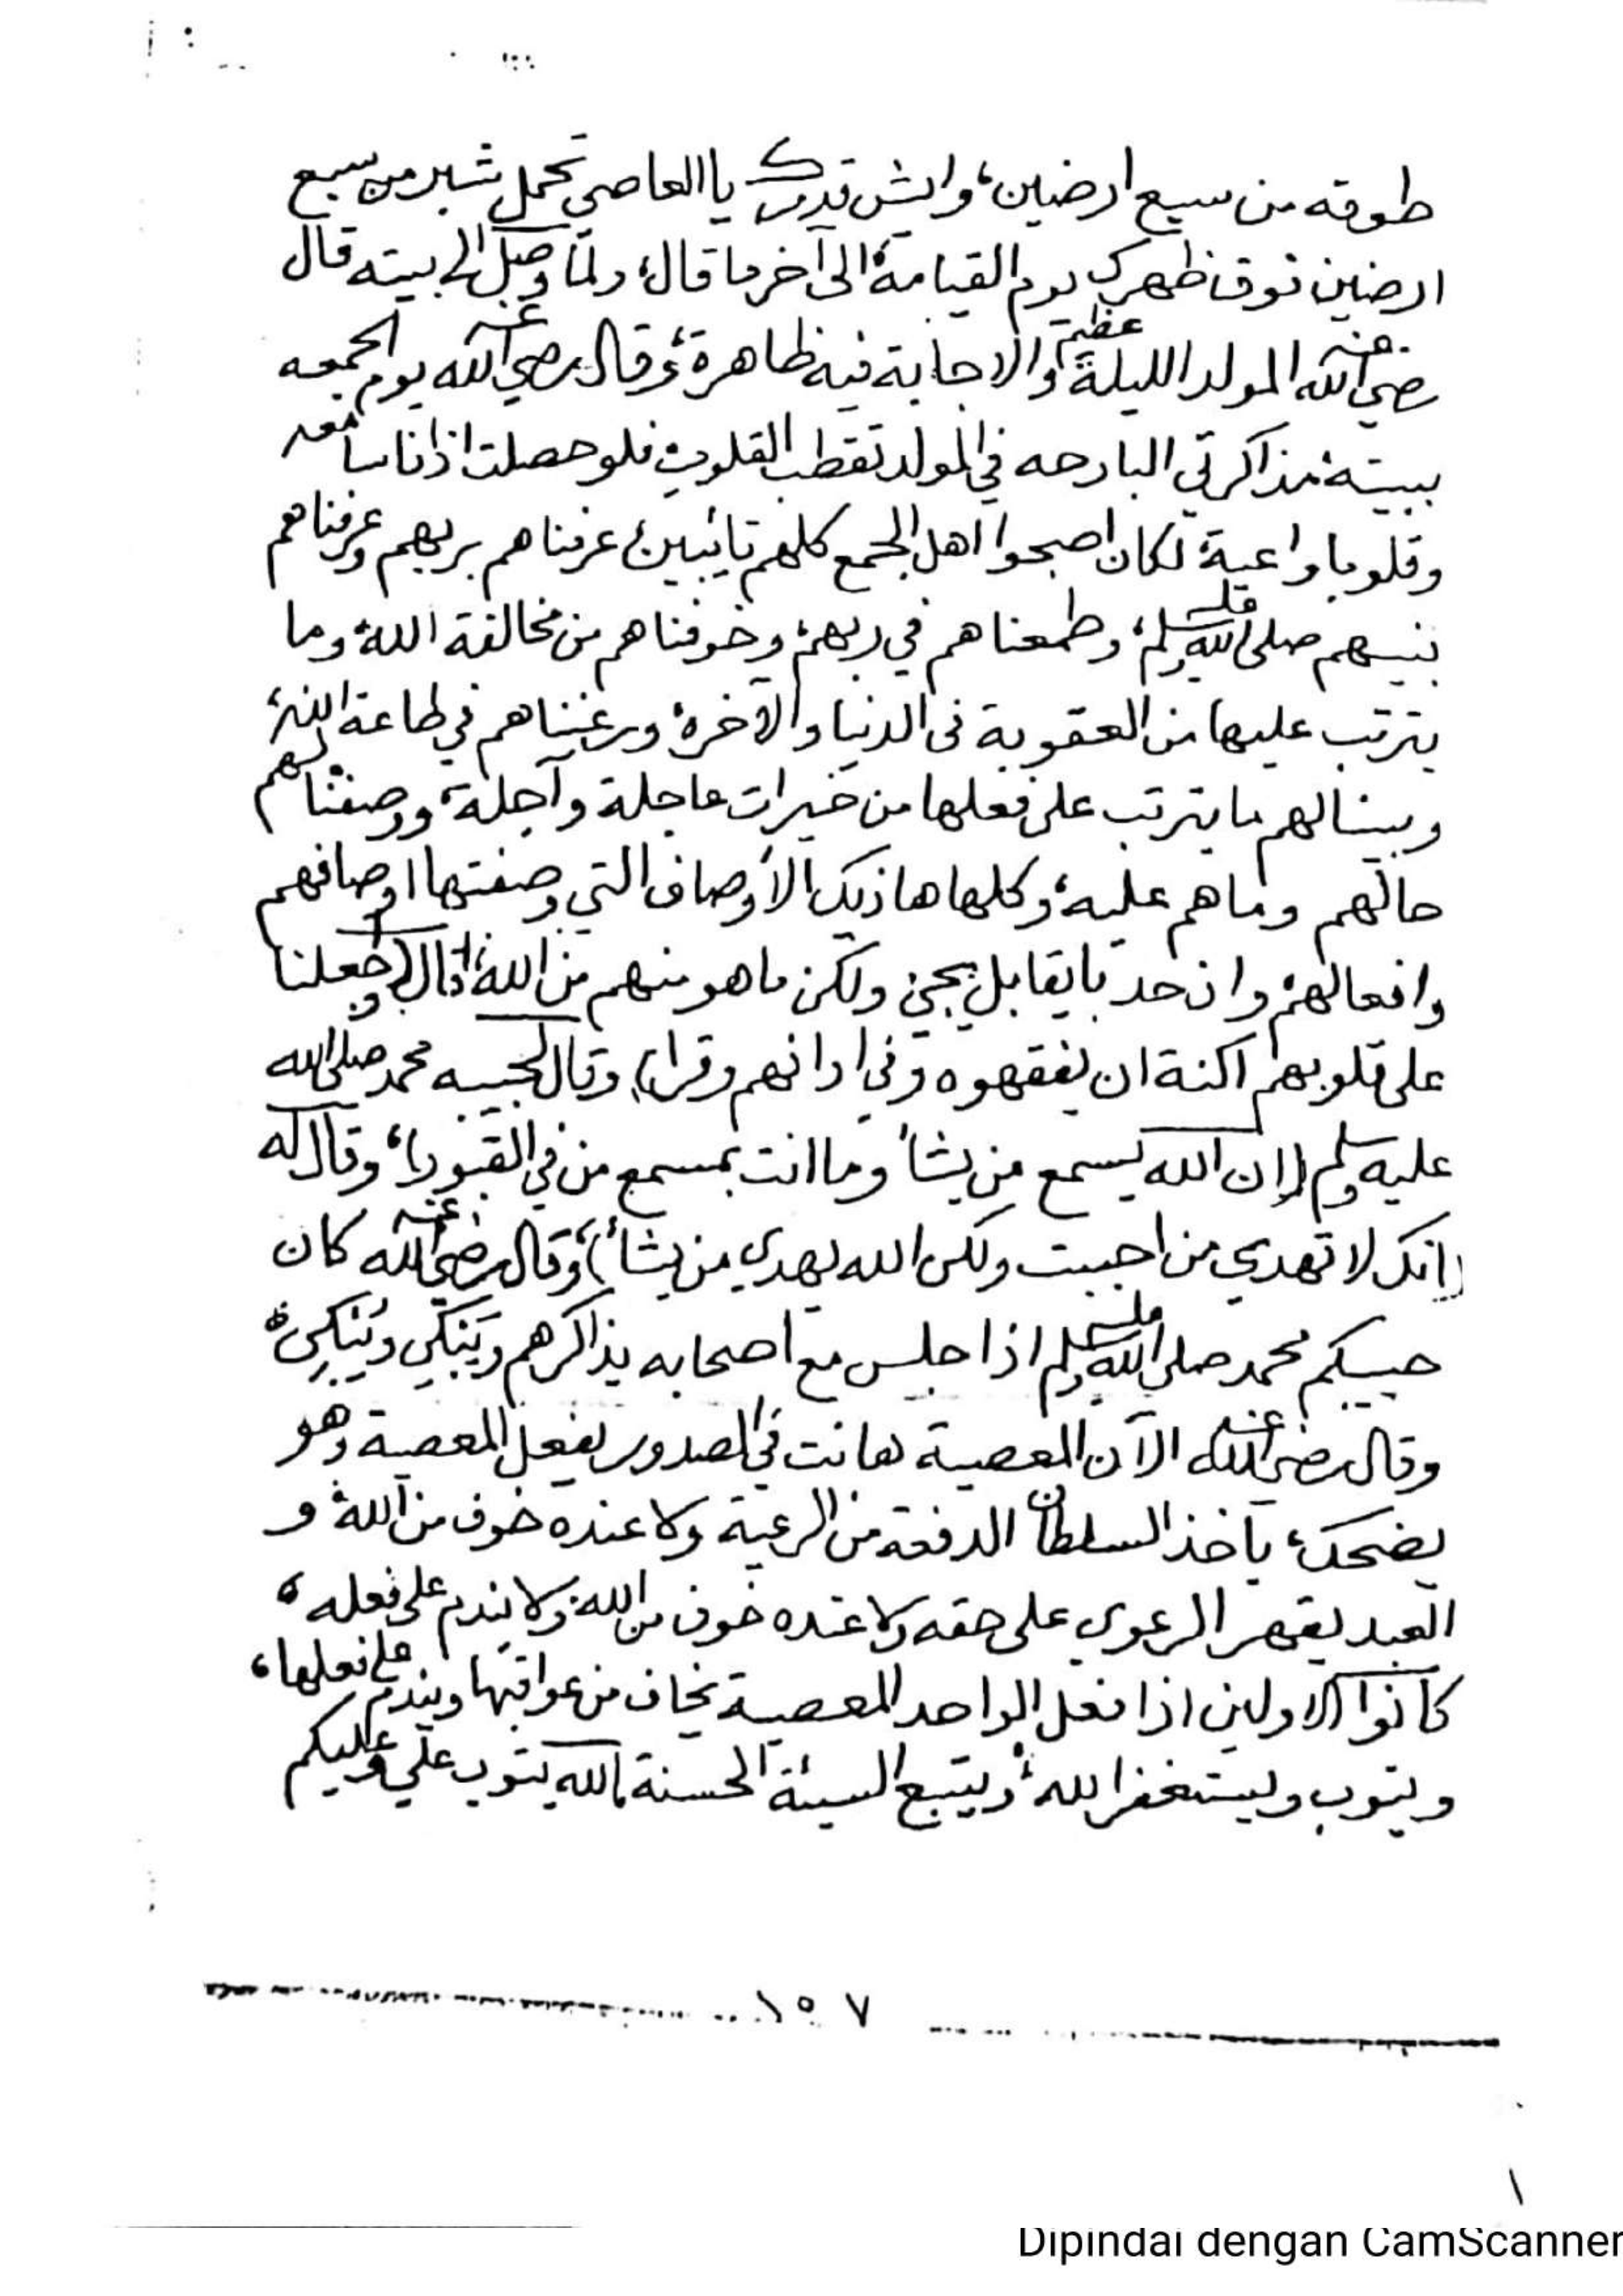 طوقه من سبع ارضين، وايش قدرك يا العاصي تحمل شبر من سبع
ارضين فوق ظهرك يوم القيامة، الى آخر ما قال، ولما وصل الى بيته قال
رضي الله عنه المولد الليلة عظيم والاجابة فيه ظاهرة، وقال رضي الله عنه يوم الجمعه
ببيته: مذاكرتي البارحه في المولد تقطب القلوب فلو حصلت اذانا سامعه
وقلوبا واعية، لكان اصبحوا اهل الجمع كلهم تايبين، عرفناهم بربهم وعرفناهم
بنبيهم صلى الله عليه وسلم، وطمعناهم في ربهم، وخوفناهم من مخالفة الله، وما
يترتب عليها من العقوبة فى الدنيا والآخرة، ورغبناهم في طاعة الله،
وبينا لهم ما يترتب على فعلها من خيرات عاجلة وآجلة، ووصفنا لهم
حالهم وما هم عليه، وكلها هاذيك الأوصاف التي وصفتها اوصافهم
وافعالهم، وان حد بايقابل يجي، ولكن ما هو منهم من الله، قال (وجعلنا
على قلوبهم اكنة ان يفقهوه وفى اذانهم وقرا)، وقال لحبيبه محمد صلى الله
عليه وسلم (ان الله يسمع من يشأ وما انت بمسمع من في القبور)، وقال له
(انك لا تهدي من احببت ولكن الله يهدي من يشأ)، وقال رضي الله عنه كان
حبيبكم محمد صلى الله عليه وسلم اذا جلس مع اصحابه يذاكرهم ويَبكي ويُبكي،
وقال رضي الله عنه الآن المعصية هانت في الصدور يفعل المعصية وهو
يضحك، يأخذ السلطان الدفعة من الرعية ولا عنده خوف من الله، و
العبد يقهر الرعوي على حقه ولا عنده خوف من الله، ولا يندم على فعله،
كانوا الاولين اذا فعل الواحد المعصية يخاف من عواقبها ويندم على فعلها،
ويتوب ويستغفر الله، ويتبع السيئة الحسنة، الله يتوب علي وعليكم
١٥٧
١
Dipindai dengan CamScanner